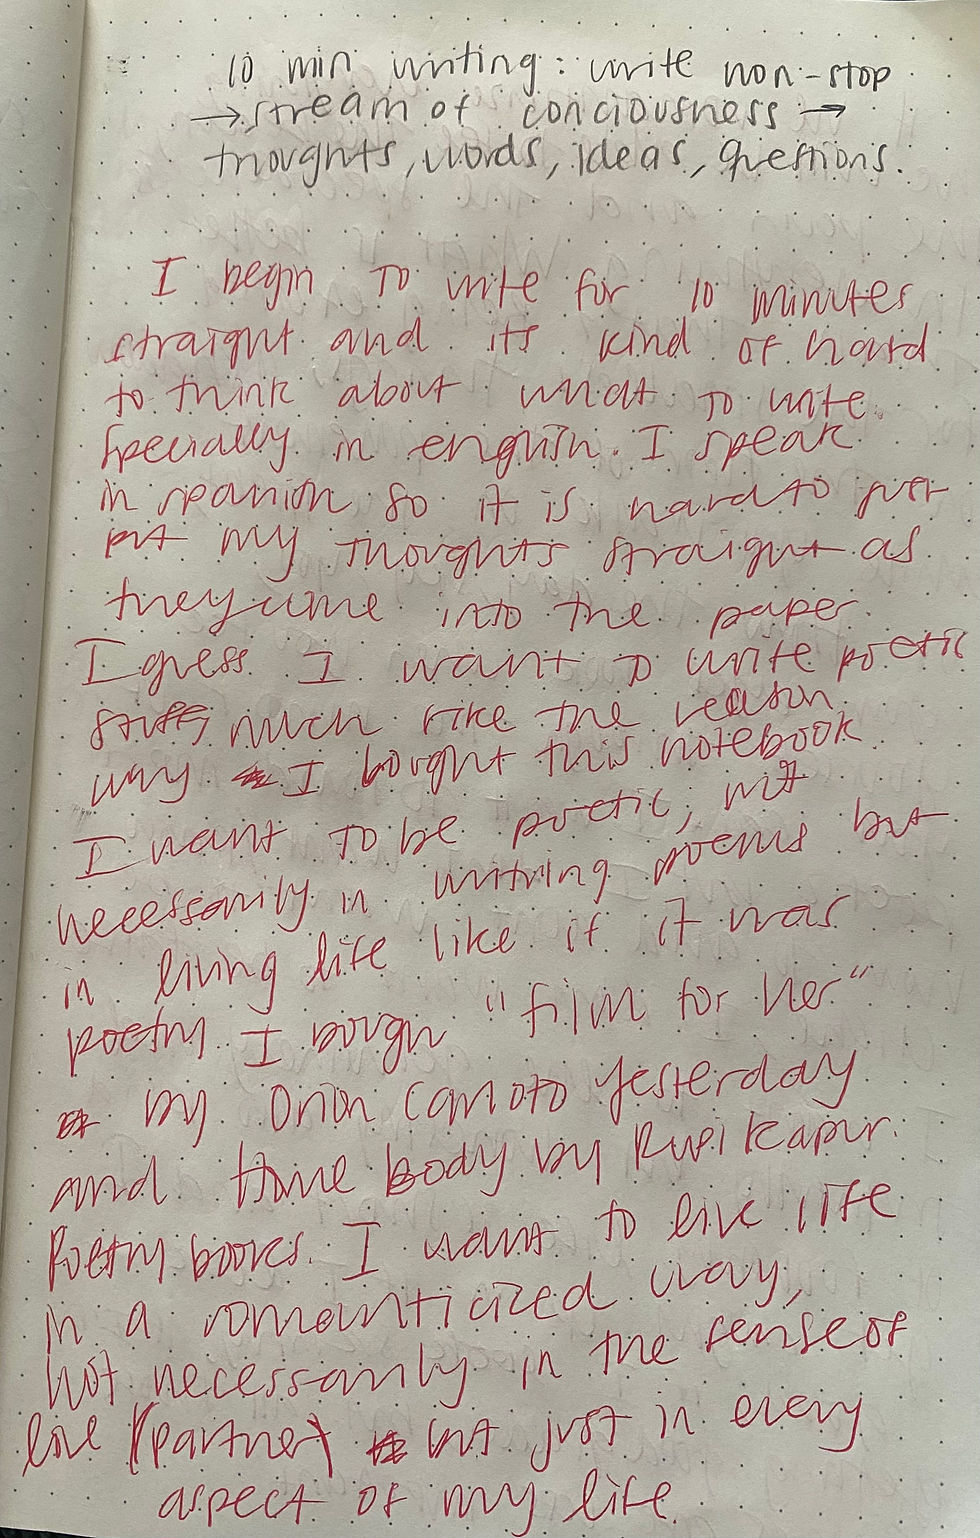 10 min writing: write non-stop
→ stream of conciousness →
thoughts, words, ideas, questions.
I begin to write for 10 minutes
straight and its kind of hard
to think about what to write
specially in english. I speak
in spanish so it is hard to just
put my thoughts straight as
they come into the paper.
I guess I want to write poetic
stuff, much like the reason
way I bought this notebook
I want to be poetic, not
necessarily in writing poems but
in living life like if it was
poetry. I bough "film for her"
by Orion Carloto yesterday
and Home body by Rupi Kapur.
Poetry books. I want to live life
in a romanticized way,
not necessarily in the sense of
love (partner) but just in every
aspect of my life.